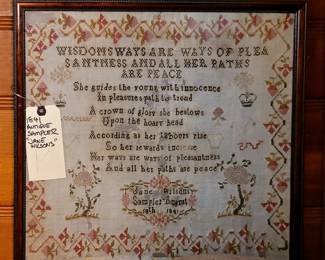 WISDOMS WAYS ARE WAYS OF PLEA
SANTNESS AND ALL HER PATHS
ARE PEACE
She guides the young with innocence
In pleasures path to tread
A crown of glory she bestows
Upon the hoary head
According as her labours rise
So her rewards increase
Her ways are ways of pleasantness
And all her paths are peace
Jane
Sampler August
1841
1841
ANTIQUE
SAMPLER
"JANE
WILSONS"